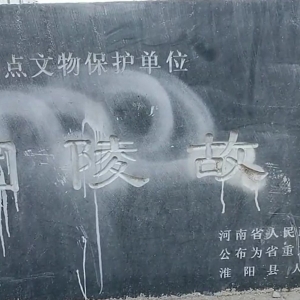 点文物保护单位
陵故
河南省人民
公布为省重
淮阳县人